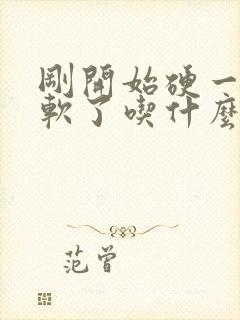 剛開始硬一
軟了喫什麼
范曾